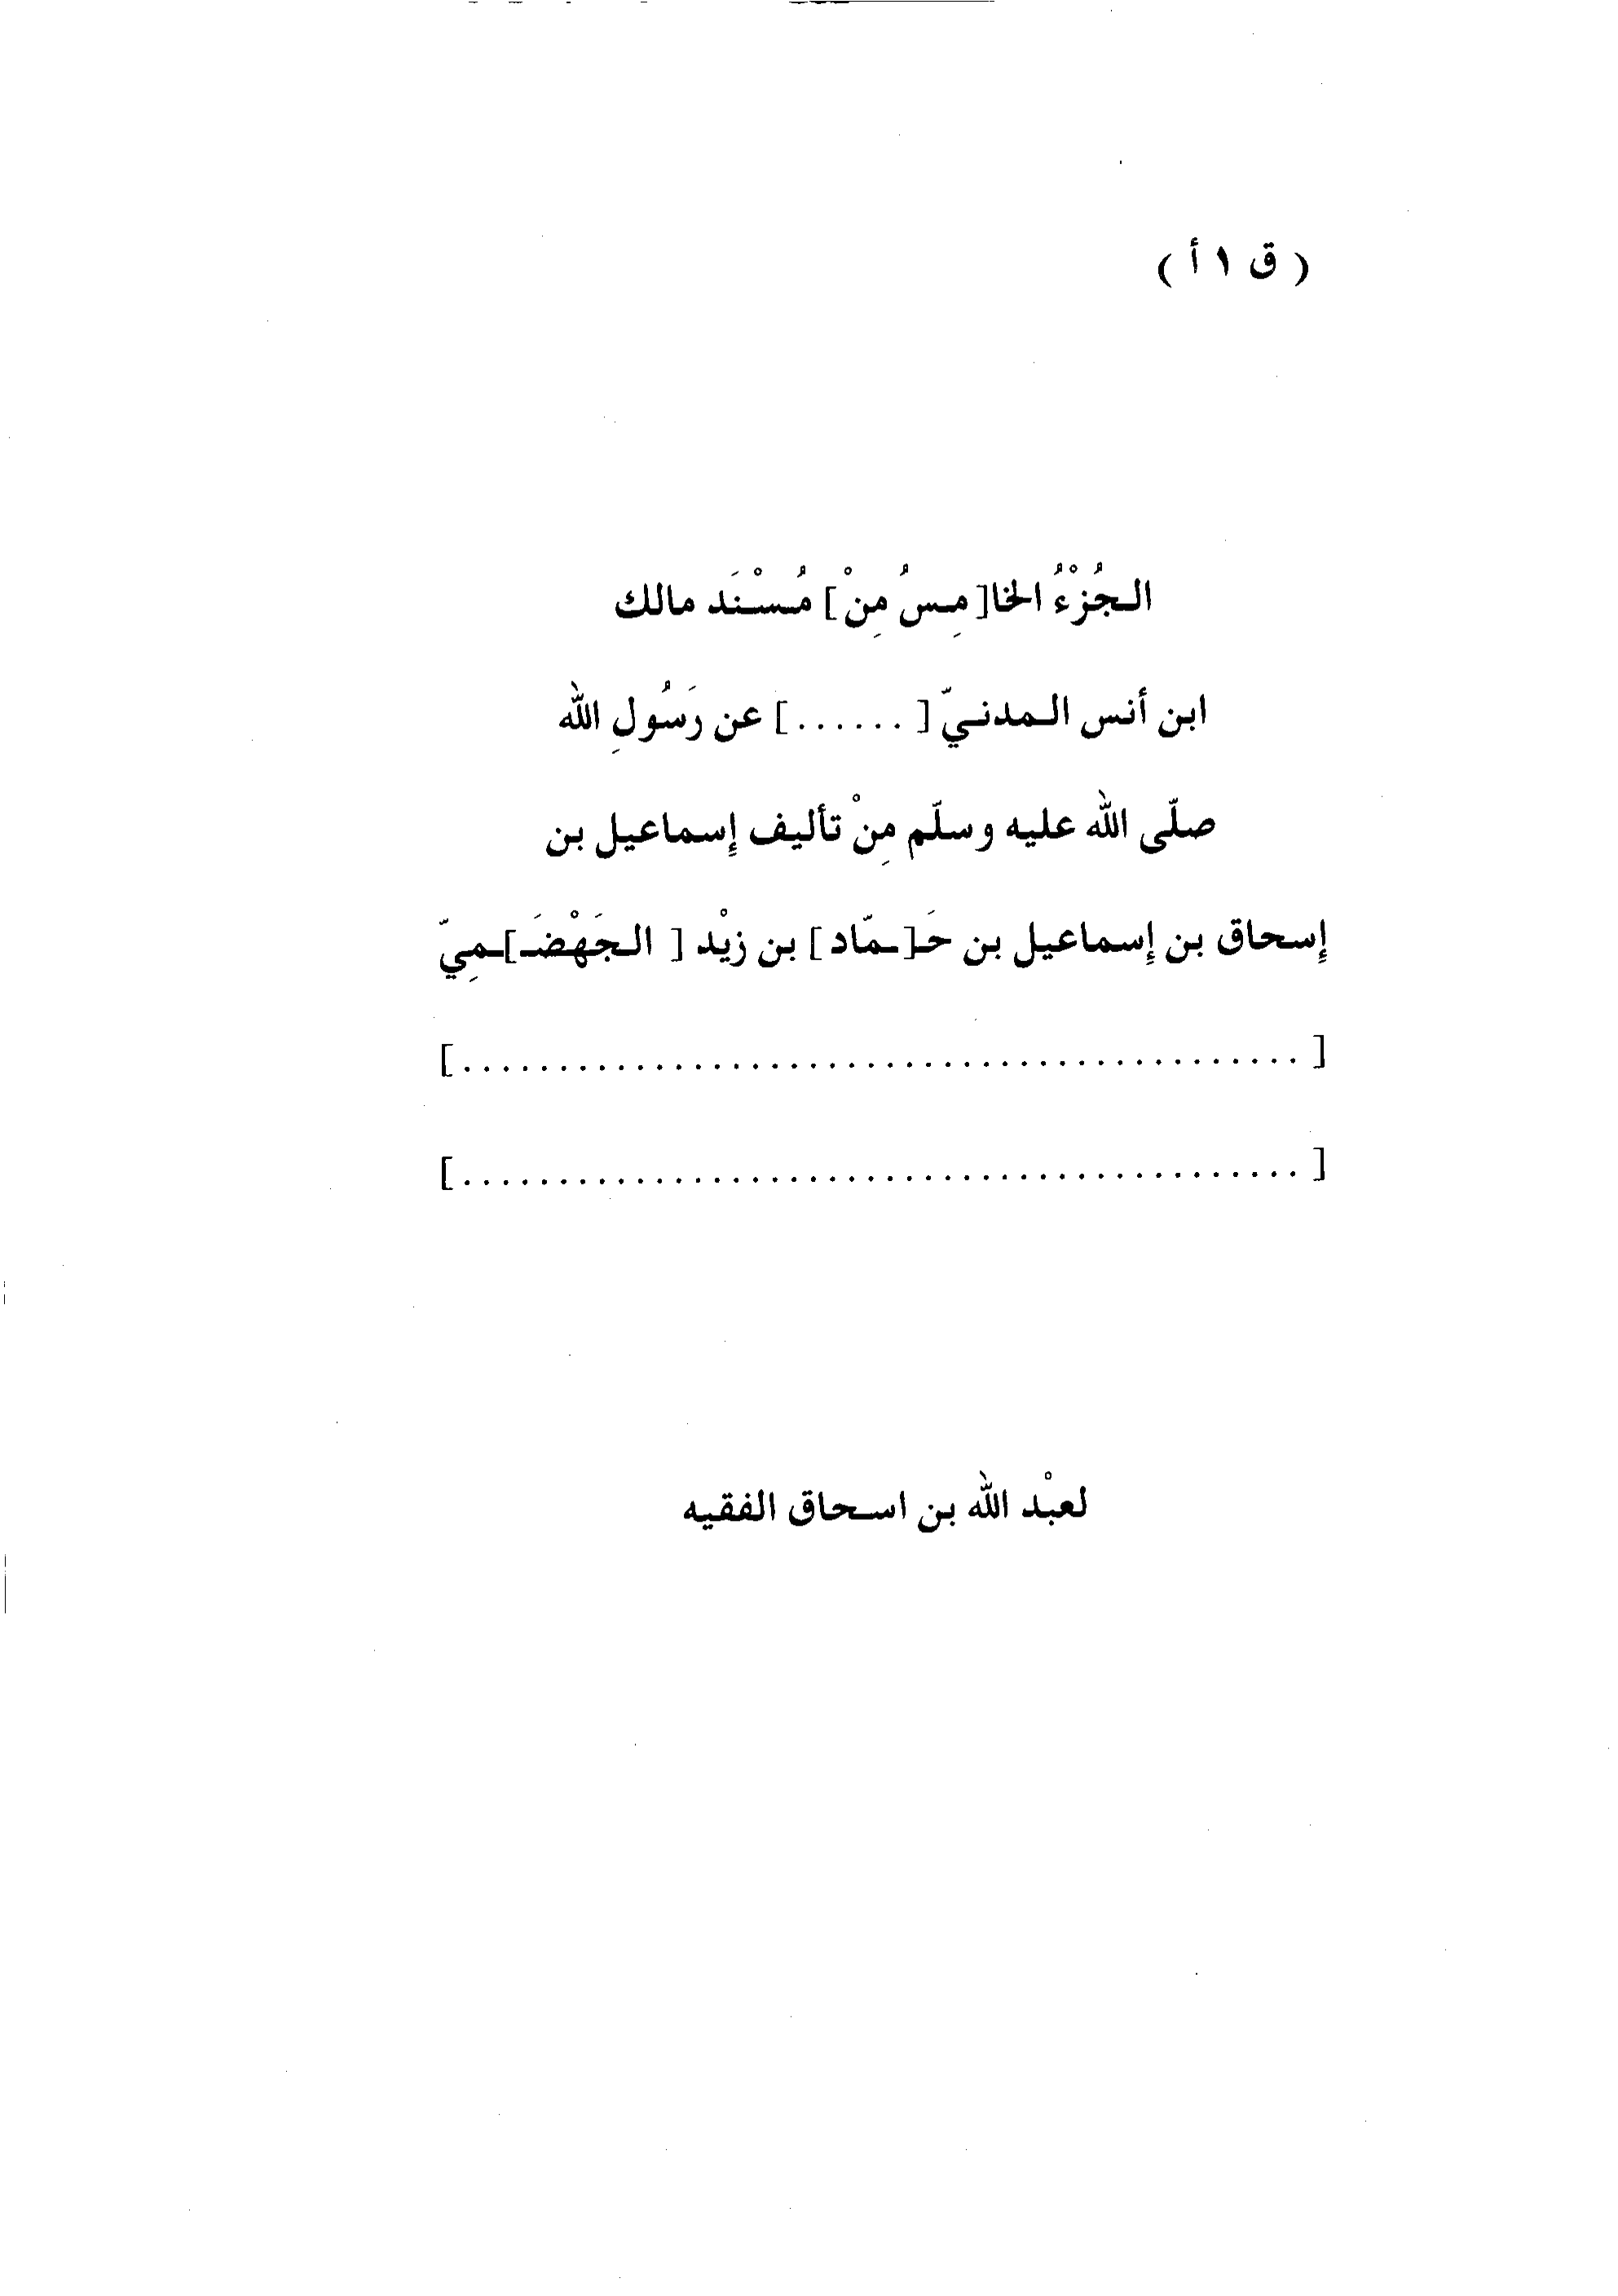 ( ق ١ أ )
الجُزْءُ الخا[مِسُ مِنْ] مُسْنَد مالك
ابن أنس المدنيّ [......] عن رَسُولِ الله
صلّى الله عليه وسلّم مِنْ تأليف إسماعيل بن
إسحاق بن إسماعيل بن حَـ[ـمّاد] بن زيْد [ الجَهْضَـ]ـمِيّ
[............................................]
[............................................]
لعبْد الله بن اسحاق الفقيه